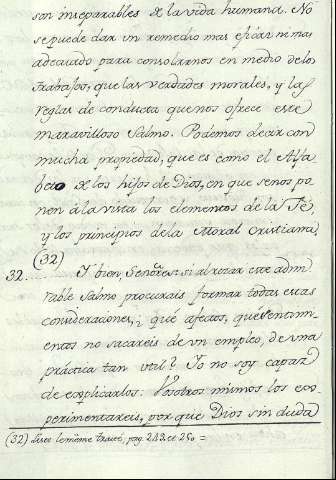 son inseparables de la vida humana. No
se puede dar un remedio mas eficáz ni mas
adecuado para consolarnos en medio de los
trabajos, que las verdades morales, y las
reglas de conducta que nos ofrece este
maravilloso Salmo. Podemos decir con
mucha propiedad, que es como el Alfa
beto de los hijos de Dios, en que se nos po
nen á la vista los elementos de la Fé,
y los principios de la Moral Cristiana
(32)
32. Y bien, Señores: si al rezar este admi
rable Salmo procurais formar todas estas
consideraciones, ¿ qué afectos, que sentimi
entos no sacareis de un empleo, de una
práctica tan util? Yo no soy capaz
de explicarlos. Vosotros mismos los ex
perimentareis, por que Dios sin duda
(32) Lisez le même traité, pag. 249. et 250 =